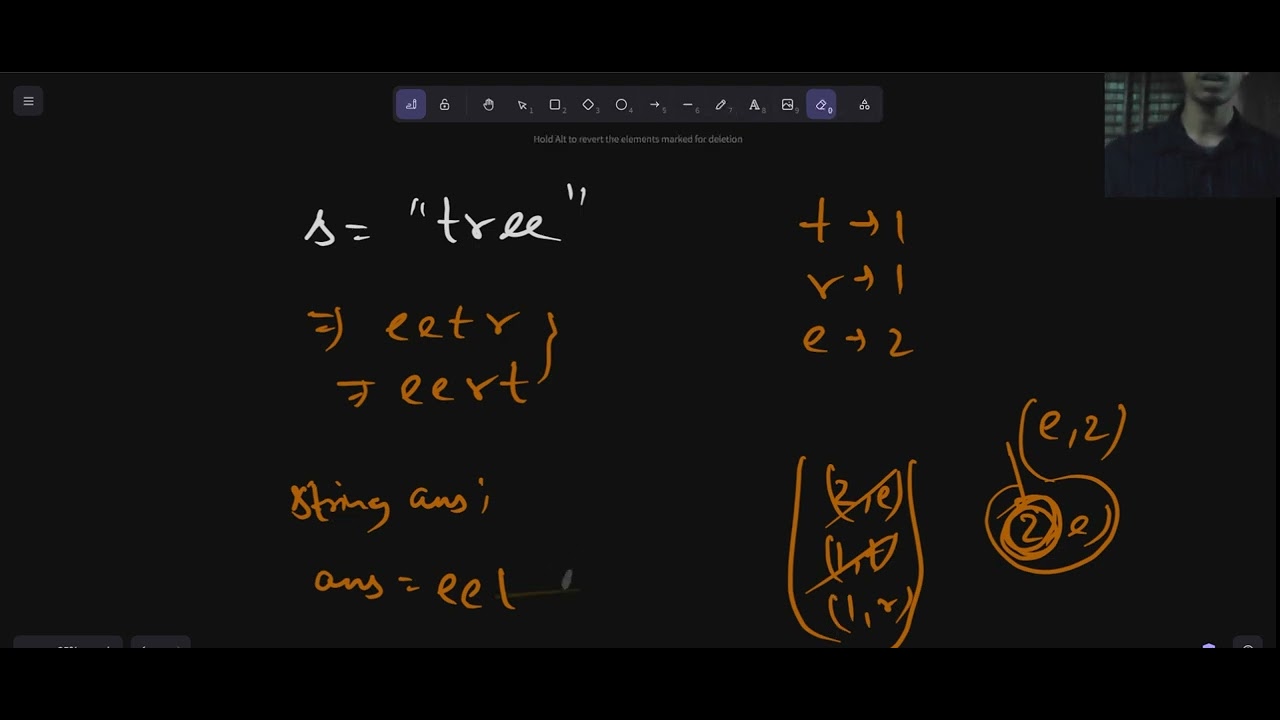 Hold Alt to revert the elements marked for deletion
s = "tree"
⇒ eetr }
⇒ eert
t → 1
r → 1
e → 2
(e,2)
(2,e)
(1,t)
(1,r)
2 e)
string ans;
ans = eet